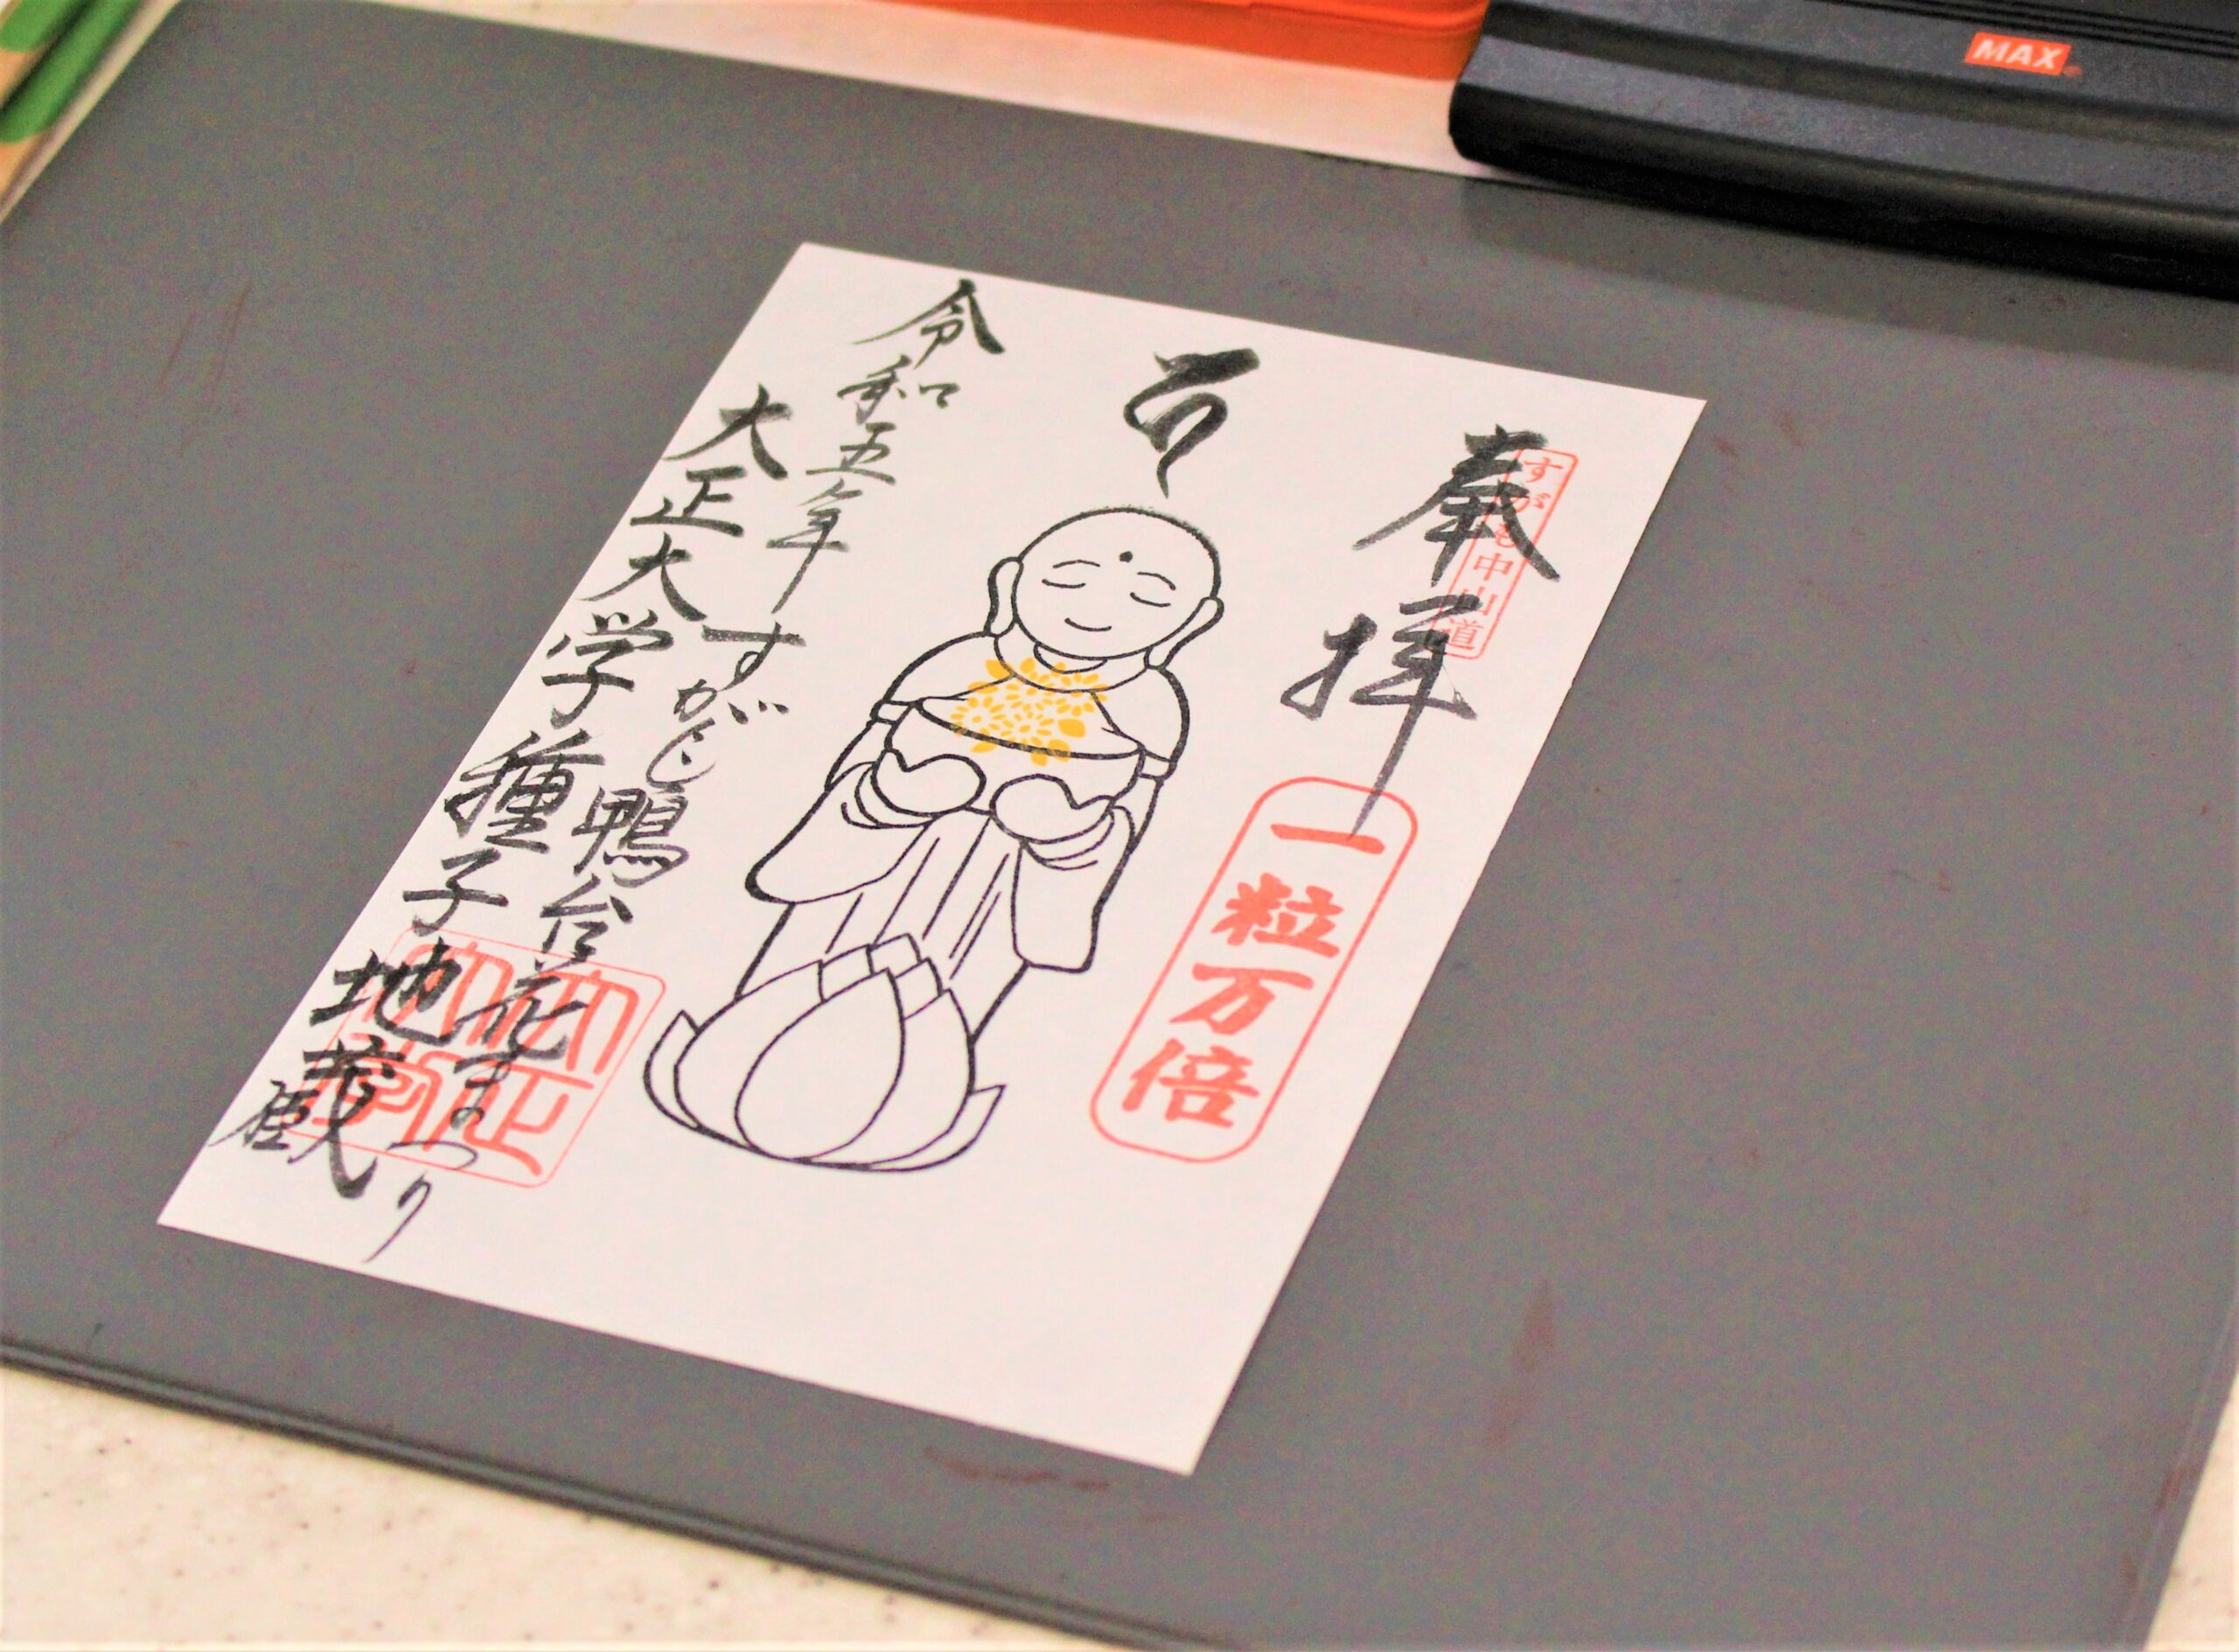 すがも中山道
奉拝
一粒万倍
令和五年 すがも鴨台花まつり
大正大学 種子地蔵
MAX